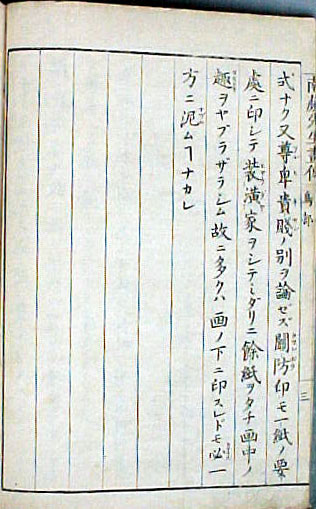 式ナク又尊卑貴賤ノ別ヲ論ゼズ關防印モ一紙ノ要
處ニ印シテ装潢家ヲシテミダリニ餘紙ヲタチ画中ノ
趣ヲヤブラザラシム故ニ多クハ画ノ下ニ印スレドモ必一
方ニ泥ムヿナカレ
三